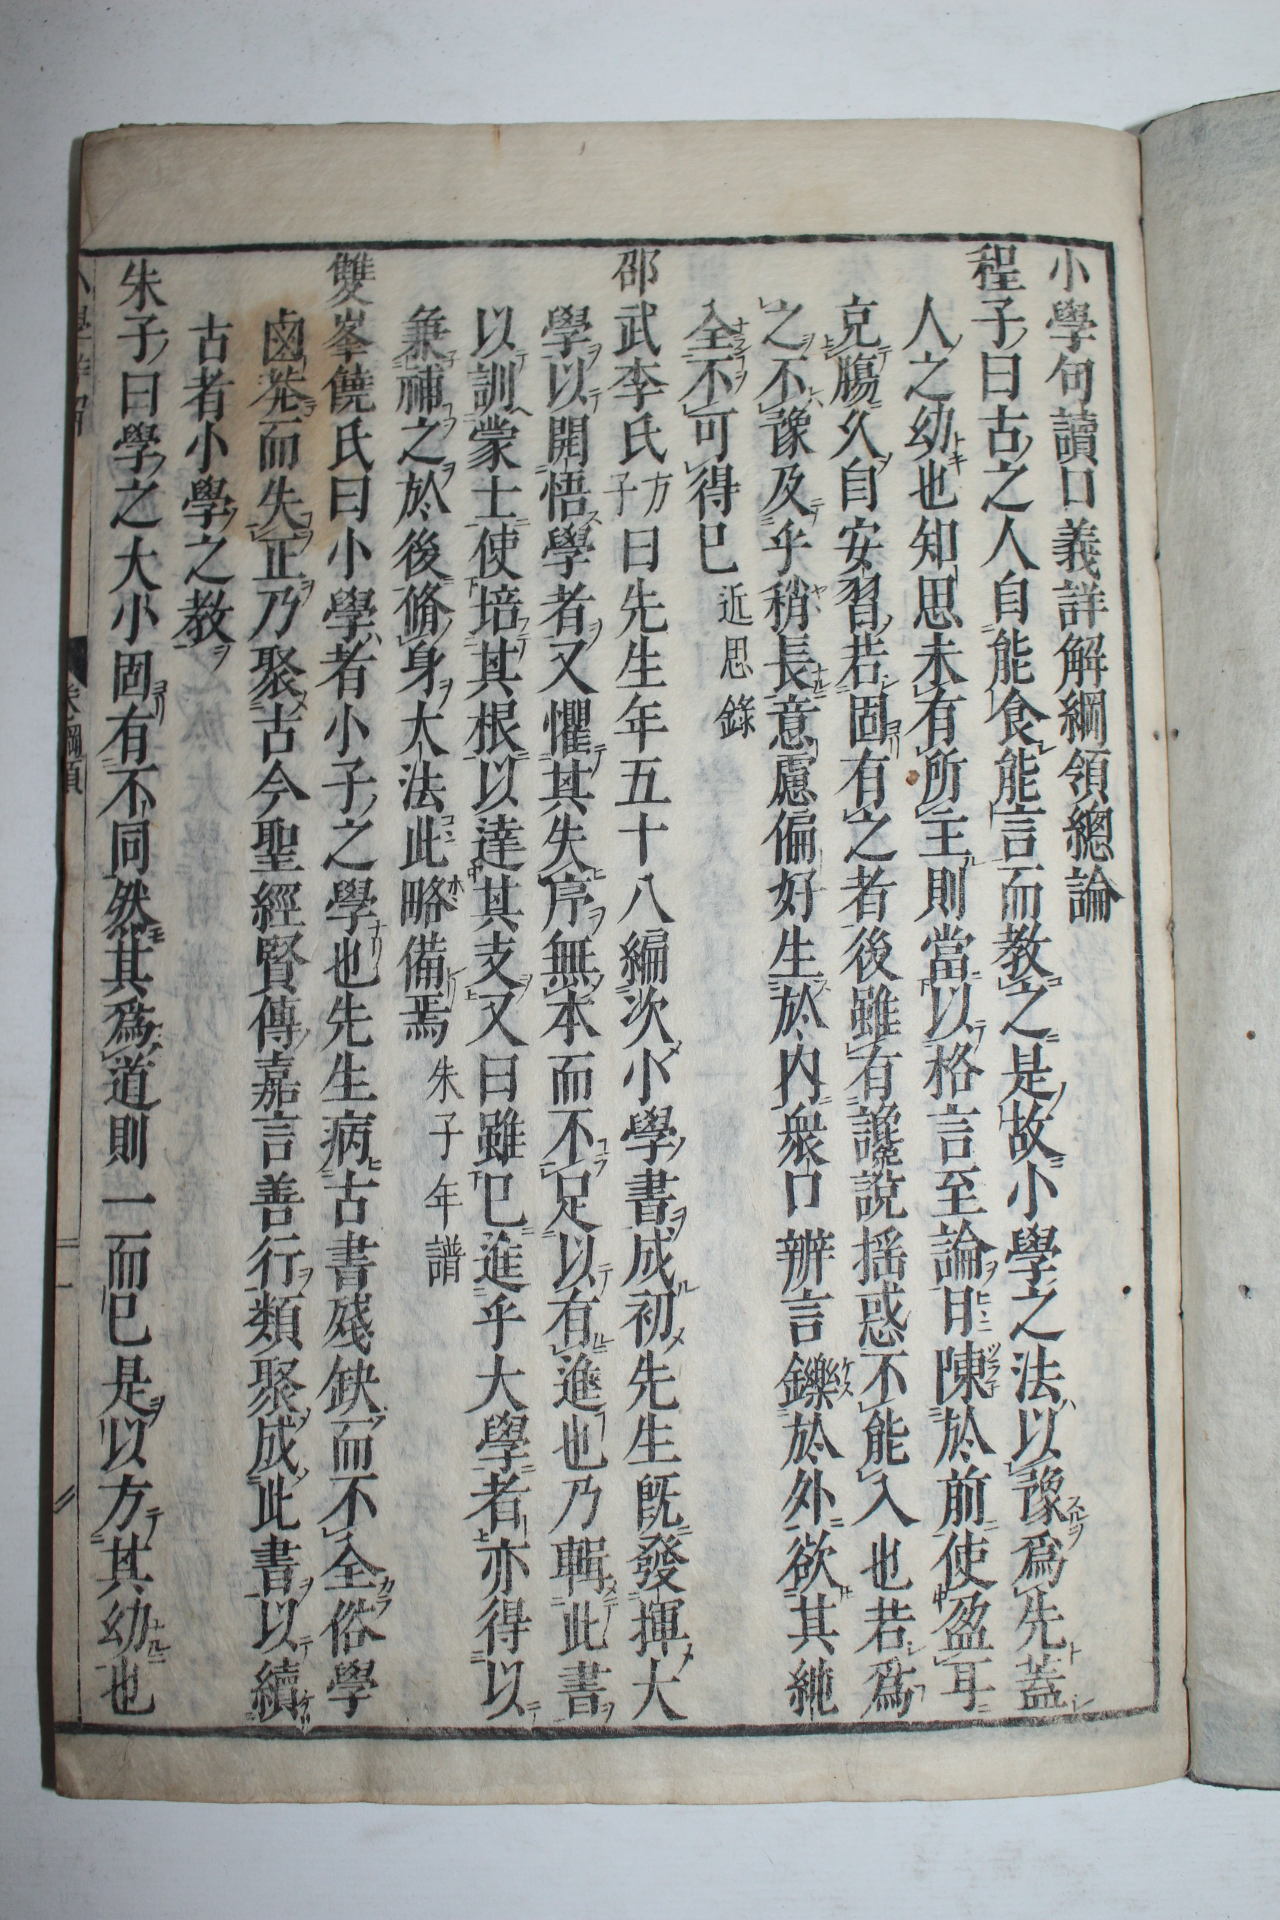 小學句讀口義詳解綱領總論
程子曰古之人自能食能言而教之是故小學之法以豫爲先蓋
人之幼也知思未有所主則當以格言至論日陳於前使盈耳
充膓久自安習若固有之者後雖有讒說揺惑不能入也若爲
之不豫及乎稍長意慮偏好生於内衆口辨言鑠於外欲其純
全不可得已近思錄
邵武李氏方子曰先生年五十八編次小學書成初先生旣發揮大
學以開悟學者又懼其失序無本而不足以有進也乃輯此書
以訓蒙士使培其根以達其支又曰雖已進乎大學者亦得以
兼補之於後脩身大法此略備焉朱子年譜
雙峯饒氏曰小學者小子之學也先生病古書殘缺而不全俗學
鹵莽而失正乃聚古今聖經賢傳嘉言善行類聚成此書以續
古者小學之教
朱子曰學之大小固有不同然其爲道則一而已是以方其幼也